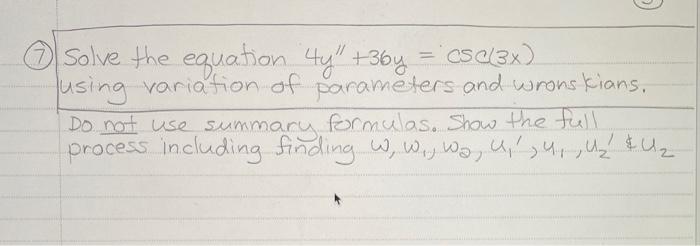 ⑦ Solve the equation 4y" +36y = csc(3x)
using variation of parameters and wronskians.
Do not use summary formulas. Show the full
process including finding W, W₁, W₂, u₁', u₁, u₂' & u₂